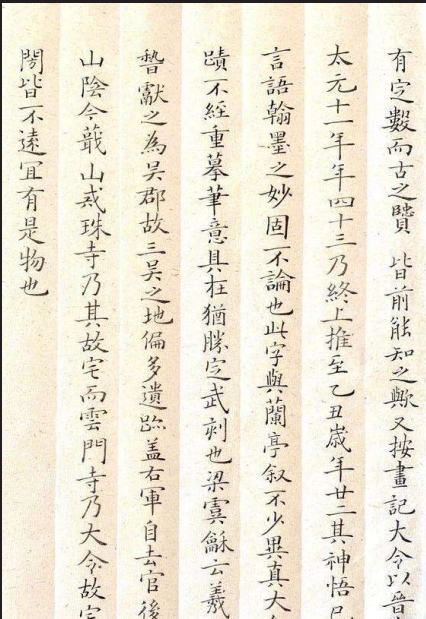 有定數而古之皆前能知之歟又按畫記大令以晉
太元十一年年四十三乃終上推至乙丑歲年廿二其神悟已
言語翰墨之妙固不論也此字與蘭亭叙不少異真大
蹟不經重摹筆意具在猶勝定武刻也梁虞龢云羲
獻之為吳郡故三吳之地偏多遺跡蓋右軍自去官後
山陰今蕺山戒珠寺乃其故宅而雲門寺乃大令故宅
閒皆不遠宜有是物也